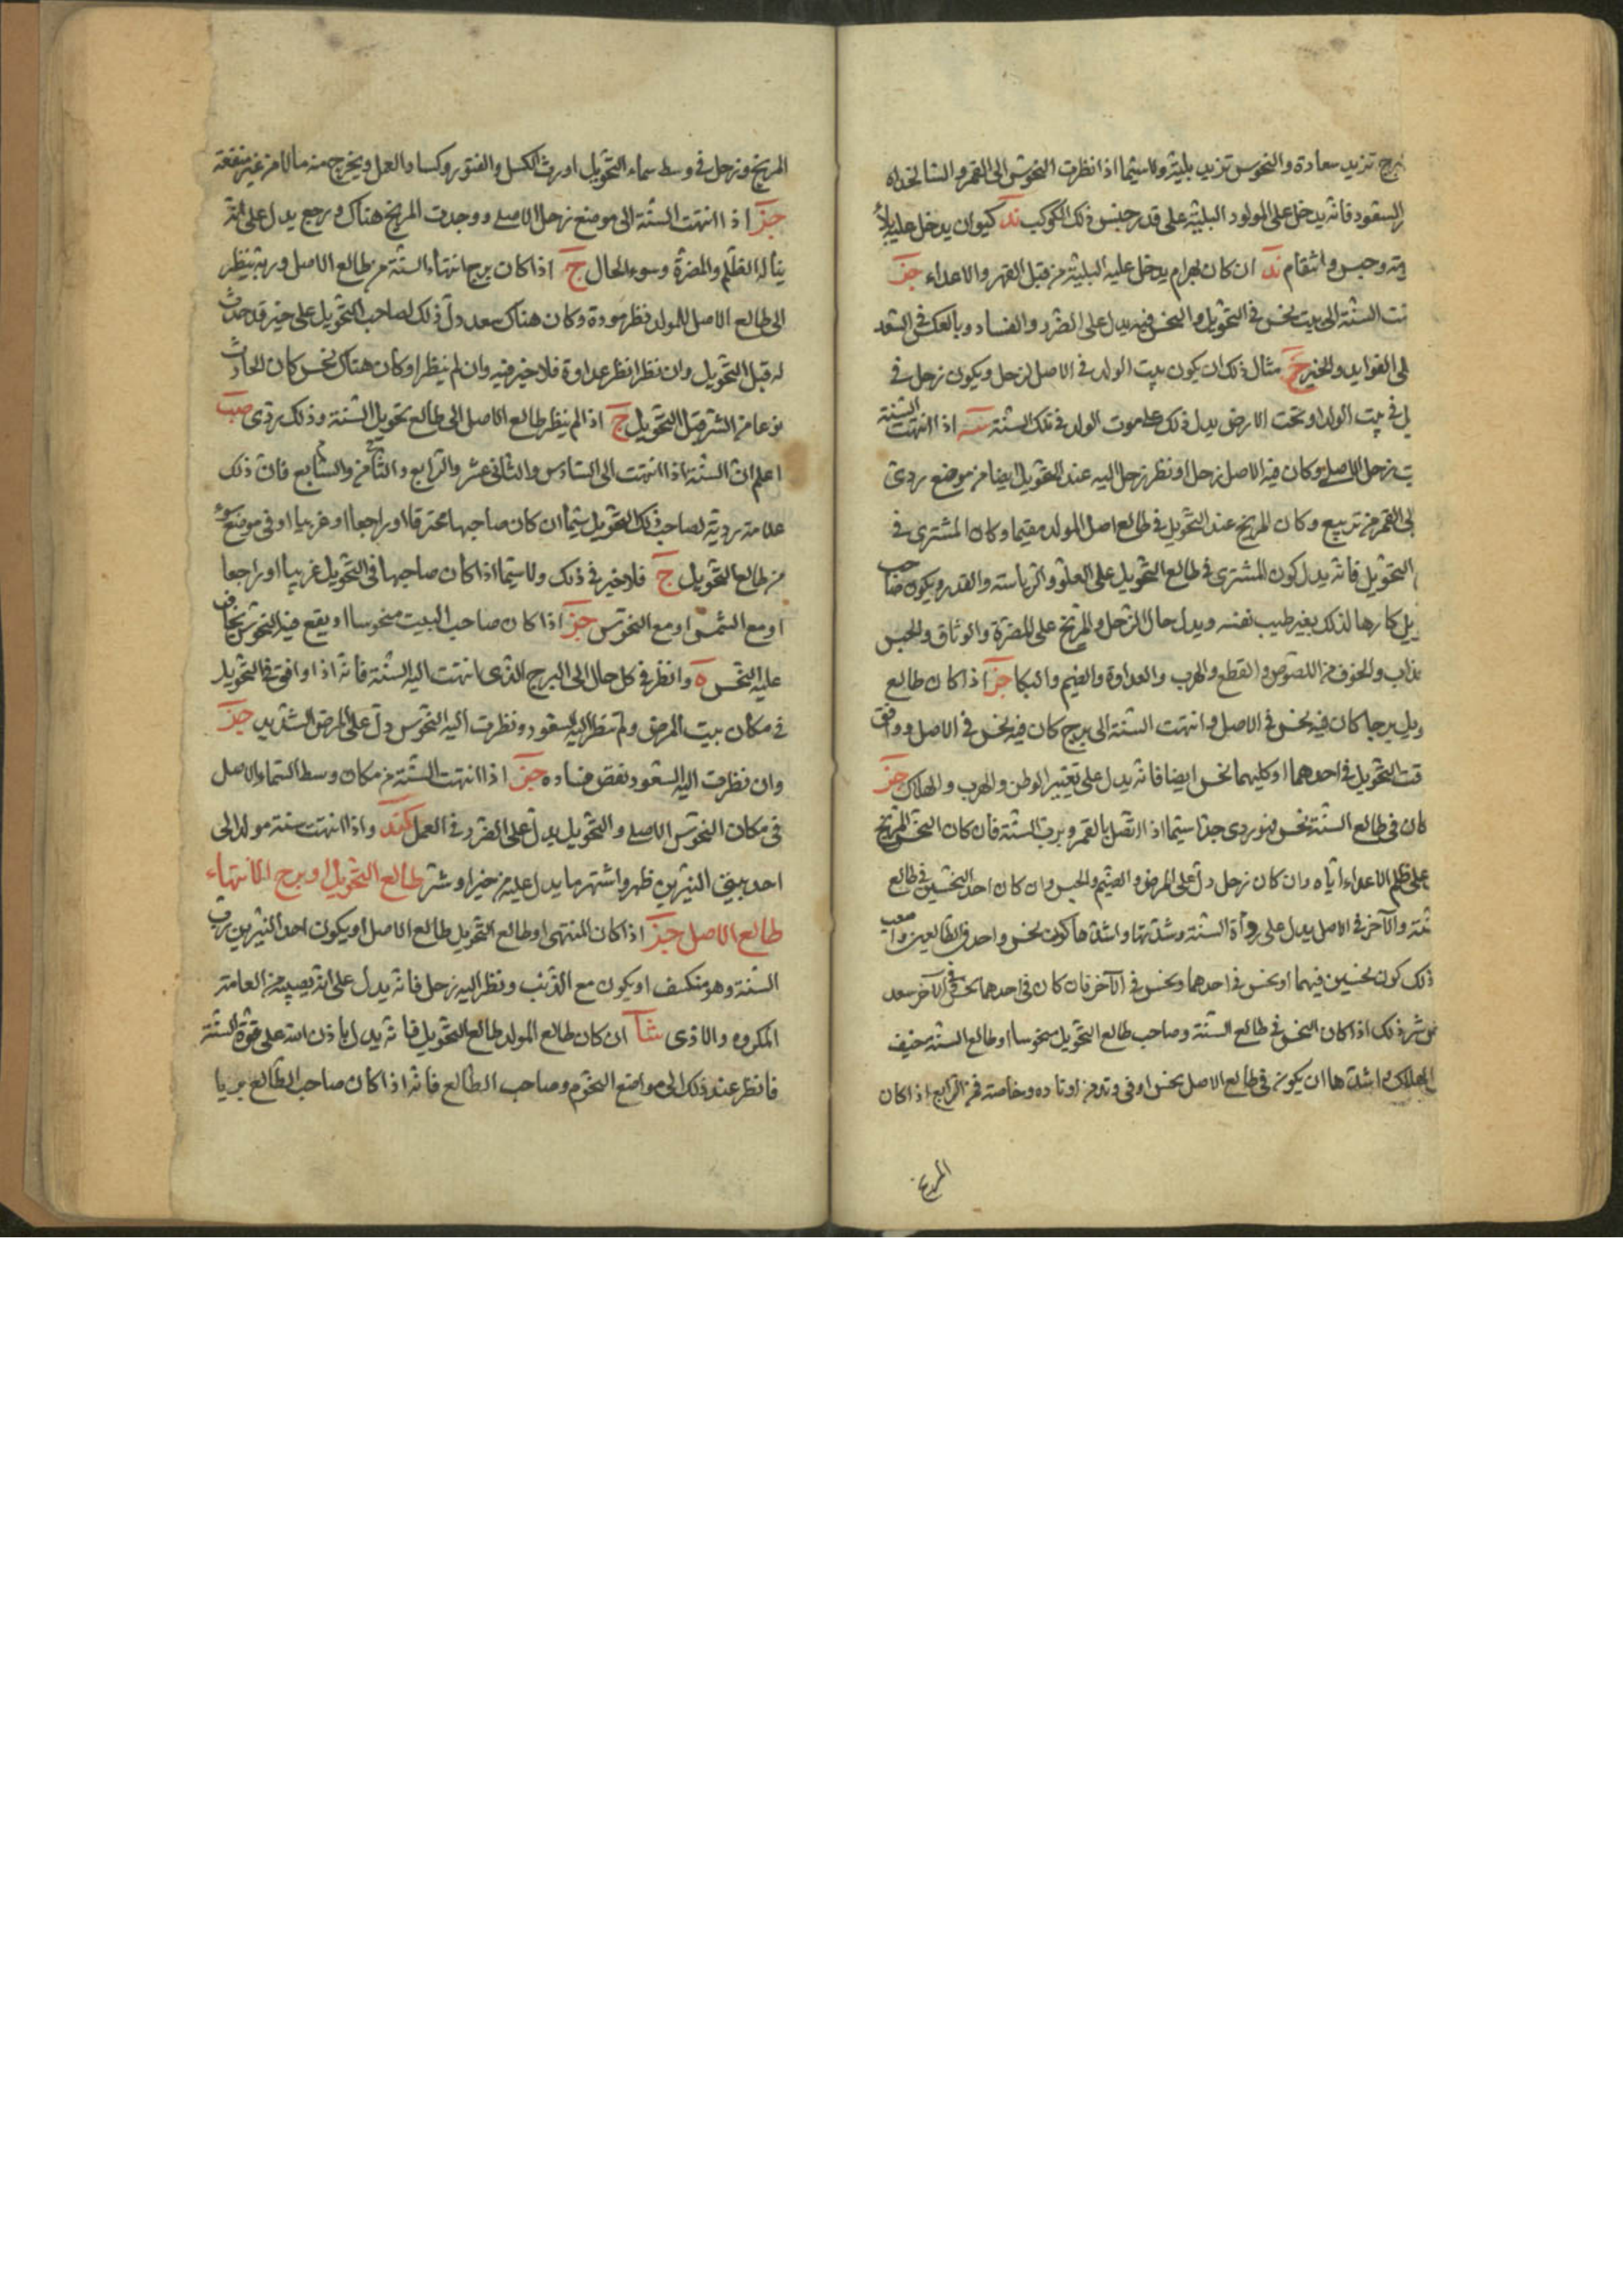 برج تزيد سعادة والنحوس تزيد بلية ولا سيما اذا نظرت النحوس الى القمر والسا لخداه
السعود فانه يدخل على المولود البلية على قدر جنس ذلك الكوكب ند كيوان يدخل عليه بلاء
وحبس وانتقام ند ان كان بهرام يدخل عليه البلية من قبل القهر والاعداء جز
نت السنة الى بيت نحس في التحويل والنحس فيه يدل على الضرر والفساد وبالعكس في السعد
لى الفوايد والخير ج مثال ذلك ان يكون بيت الولد في الاصل لزحل ويكون زحل في
يل في بيت الولد او تحت الارض يدل ذلك على موت الولد في تلك السنة سه اذا انتهت السنة
يت زحل الاصلي وكان فيه الاصل زحل او نظر زحل اليه عند التحويل ايضا من موضع ردى
لى القمر من تربيع وكان المريخ عند التحويل في طالع اصل المولد مقيما وكان المشترى في
التحويل فانه يدل كون المشترى في طالع التحويل على العلو والرياسة والقدر ويكون صاحب
يل كارها لذلك بغير طيب نفسه ويدل حال الزحل والمريخ على المضرة والوثاق والحبس
ذاب والخوف من اللصوص والقطع والهرب والعداوة والضيم والبكا جز اذا كان طالع
ويل برجا كان فيه نحس في الاصل وانتهت السنة الى برج كان فيه نحس في الاصل ووافق
قت التحويل في احدهما او كليهما نحس ايضا فانه يدل على تغيير الوطن والهرب والهلاك جز
كان في طالع السنة نحس فهو ردى جدا سيما اذا اتصل بالقمر وبرب السنة فان كان النحس المريخ
على ظلم الاعداء اياه وان كان زحل دل على المرض والضيم والحبس وان كان احد النحسين في طالع
سنة والآخر في الاصل يدل على رداة السنة وشدتها واشدها كون نحس واحد في الطالعين واصعب
ذلك كون نحسين فيهما او نحس في احدهما ونحس في الآخر فان كان في احدهما نحس في الآخر سعد
شر ذلك اذا كان النحس في طالع السنة وصاحب طالع التحويل منحوسا او طالع السنة مخيف
الهلاك واشدها ان يكون في طالع الاصل نحس او في وتد من اوتاده وخاصة في الرابع اذا كان
المريخ
المريخ وزحل في وسط سماء التحويل اورث الكسل والفتور وكساد العمل ويخرج منه مالا من غير منفعة
جز اذا انتهت السنة الى موضع زحل الاصلي ووجدت المريخ هناك ورجع يدل على انه
يناله الظلم والمضرة وسوء الحال ج اذا كان برج انتهاء السنة من طالع الاصل وربه ينظر
الى طالع الاصل للمولد نظر مودة وكان هناك سعد دل ذلك لصاحب التحويل على خير قد حدث
له قبل التحويل وان نظرا نظر عداوة فلا خير فيه وان لم ينظرا وكان هناك نحس كان الحادث
نوعا من الشر قبل التحويل ج اذا لم ينظر طالع الاصل الى طالع تحويل السنة وذلك ردى صب
اعلم ان السنة اذا انتهت الى السادس والثانى عشر والرابع والثامن والسابع فان ذلك
علامة ردية لصاحب ذلك التحويل سيما ان كان صاحبها محترقا او راجعا او غريبا او في موضع سوء
من طالع التحويل ج فلا خير في ذلك ولا سيما اذا كان صاحبها في التحويل غريبا او راجعا
او مع الشمس او مع النحوس جز اذا كان صاحب البيت منحوسا او يقع فيه النحوس نخاف
عليه النحس ه وانظر في كل حال الى البرج الذى انتهت اليه السنة فانه اذا وافق في التحويل
في مكان بيت المرض ولم تنظر اليه السعود ونظرت اليه النحوس دل على المرض الشديد جز
وان نظرت اليه السعود نقض فساده جز اذا انتهت السنة من مكان وسط السماء الاصل
في مكان النحوس الاصلي والتحويل يدل على الضرر في العمل كند واذا انتهت سنة مولد الى
احد بيتي النيرين ظهر واشتهر ما يدل عليه من خير او شر طالع التحويل او برج الانتهاء
طالع الاصل جز اذا كان المنتهى او طالع التحويل طالع الاصل او يكون احد النيرين رب
السنة وهو منكسف او يكون مع الذنب ونظر اليه زحل فانه يدل على انه يصيبه من العامة
المكروه والاذى شا ان كان طالع المولد طالع التحويل فانه يدل باذن الله على قوة السنة
فانظر عند ذلك الى مواضع النجوم وصاحب الطالع فانه اذا كان صاحب الطالع بريا